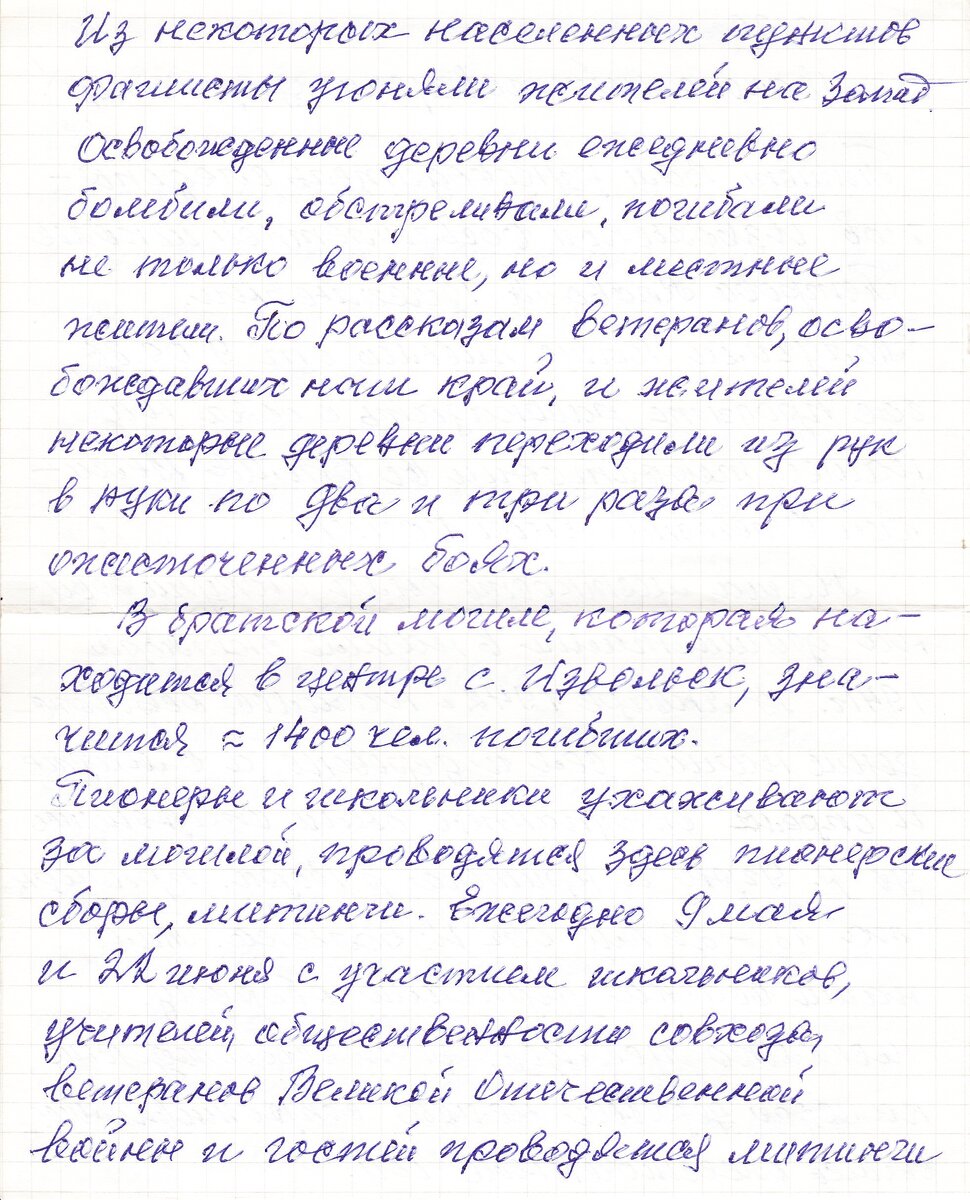 Из некоторых населенных пунктов
фашисты угоняли жителей на Запад.
Освобожденные деревни ежедневно
бомбили, обстреливали, погибали
не только военные, но и местные
жители. По рассказам ветеранов, осво-
бождавших наш край, и жителей
некоторые деревни переходили из рук
в руки по два и три раза при
ожесточенных боях.
В братской могиле, которая на-
ходится в центре с. Извольск, зна-
чится ≈ 1400 чел. погибших.
Пионеры и школьники ухаживают
за могилой, проводятся здесь пионерские
сборы, митинги. Ежегодно 9 мая
и 22 июня с участием школьников,
учителей, общественности совхоза,
ветеранов Великой Отечественной
войны и гостей проводятся митинги